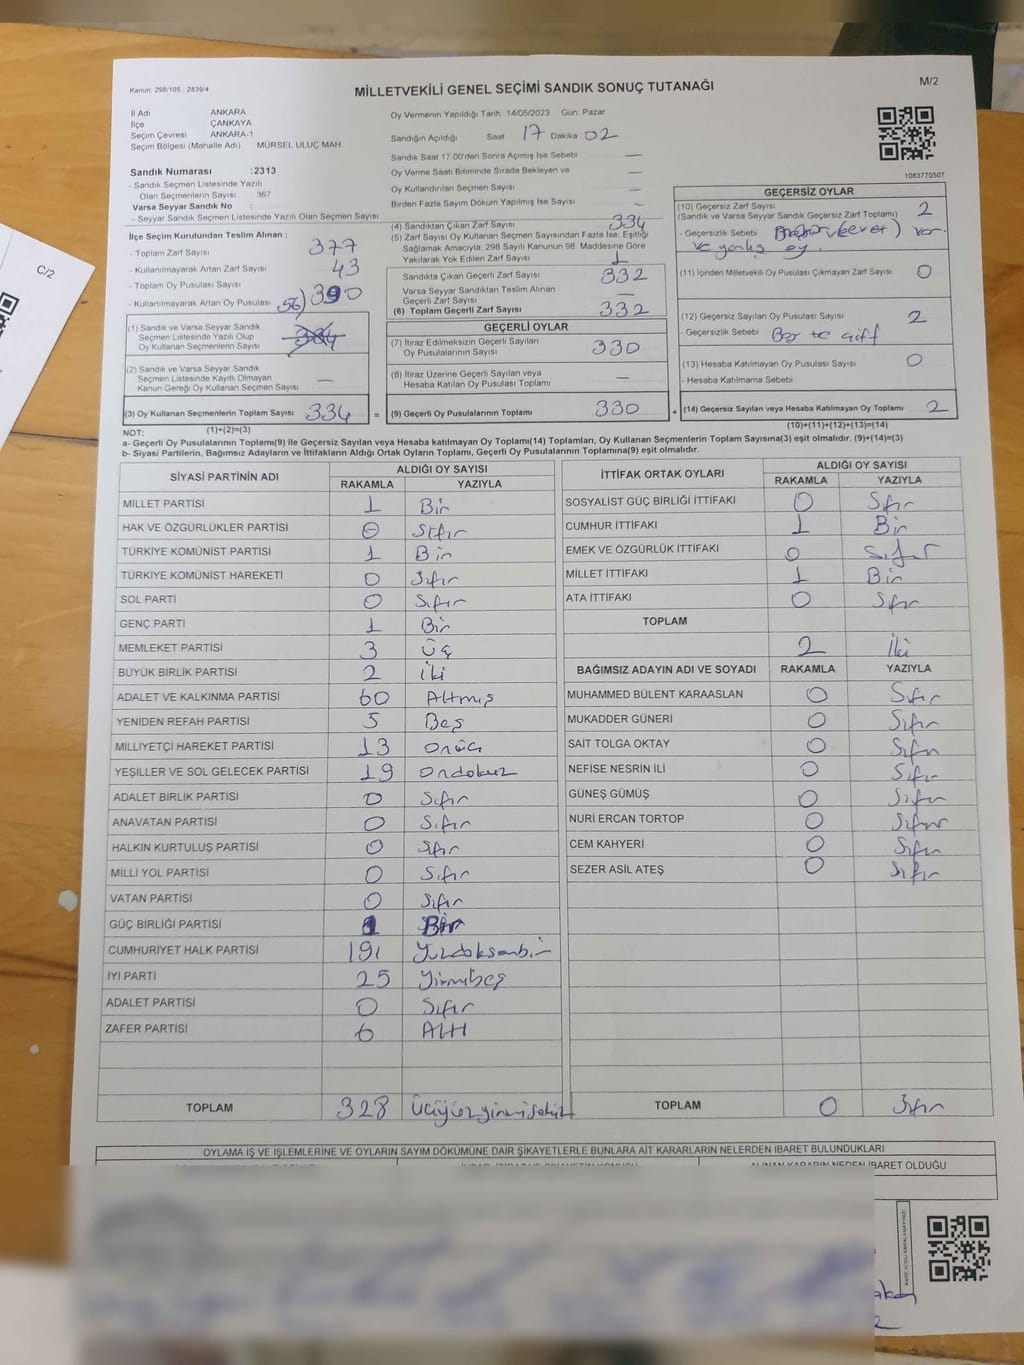 Kanun: 298/105 , 2839/4
MİLLETVEKİLİ GENEL SEÇİMİ SANDIK SONUÇ TUTANAĞI
M/2
İl Adı ANKARA
İlçe ÇANKAYA
Seçim Çevresi ANKARA-1
Seçim Bölgesi (Mahalle Adı) MÜRSEL ULUÇ MAH.
Sandık Numarası :2313
- Sandık Seçmen Listesinde Yazılı
Olan Seçmenlerin Sayısı 367
Varsa Seyyar Sandık No :
- Seyyar Sandık Seçmen Listesinde Yazılı Olan Seçmen Sayısı
Oy Vermenin Yapıldığı Tarih 14/05/2023 Gün: Pazar
Sandığın Açıldığı Saat 17 Dakika 02
Sandık Saat 17:00'den Sonra Açımış İse Sebebi —
Oy Verme Saati Bitiminde Sırada Bekleyen ve —
Oy Kullandırılan Seçmen Sayısı —
Birden Fazla Sayım Döküm Yapılmış İse Sayısı —
1083770507
İlçe Seçim Kurulundan Teslim Alınan ;
- Toplam Zarf Sayısı 377
- Kullanılmayarak Artan Zarf Sayısı 43
- Toplam Oy Pusulası Sayısı 390
- Kullanılmayarak Artan Oy Pusulası (56)
(1) Sandık ve Varsa Seyyar Sandık
Seçmen Listesinde Yazılı Olup
Oy Kullanan Seçmenlerin Sayısı
(2) Sandık ve Varsa Seyyar Sandık
Seçmen Listesinde Kayıtlı Olmayan
Kanun Gereği Oy Kullanan Seçmen Sayısı —
(3) Oy Kullanan Seçmenlerin Toplam Sayısı 334 =
(1)+(2)=(3)
(4) Sandıktan Çıkan Zarf Sayısı 334
(5) Zarf Sayısı Oy Kullanan Seçmen Sayısından Fazla İse, Eşitliği
Sağlamak Amacıyla, 298 Sayılı Kanunun 98. Maddesine Göre
Yakılarak Yok Edilen Zarf Sayısı
Sandıkta Çıkan Geçerli Zarf Sayısı 332
Varsa Seyyar Sandıktan Teslim Alınan
Geçerli Zarf Sayısı —
(6) Toplam Geçerli Zarf Sayısı 332
GEÇERLİ OYLAR
(7) İtiraz Edilmeksizin Geçerli Sayılan
Oy Pusulalarının Sayısı 330
(8) İtiraz Üzerine Geçerli Sayılan veya
Hesaba Katılan Oy Pusulası Toplamı —
(9) Geçerli Oy Pusulalarının Toplamı 330 +
GEÇERSİZ OYLAR
(10) Geçersiz Zarf Sayısı
(Sandık ve Varsa Seyyar Sandık Geçersiz Zarf Toplamı) 2
- Geçersizlik Sebebi var.
ve yanlış oy.
(11) İçinden Milletvekili Oy Pusulası Çıkmayan Zarf Sayısı 0
(12) Geçersiz Sayılan Oy Pusulası Sayısı 2
- Geçersizlik Sebebi
(13) Hesaba Katılmayan Oy Pusulası Sayısı 0
- Hesaba Katılmama Sebebi
(14) Geçersiz Sayılan veya Hesaba Katılmayan Oy Toplamı 2
(10)+(11)+(12)+(13)=(14)
NOT:
a- Geçerli Oy Pusulalarının Toplamı(9) ile Geçersiz Sayılan veya Hesaba katılmayan Oy Toplamı(14) Toplamları, Oy Kullanan Seçmenlerin Toplam Sayısına(3) eşit olmalıdır. (9)+(14)=(3)
b- Siyasi Partilerin, Bağımsız Adayların ve İttifakların Aldığı Ortak Oyların Toplamı, Geçerli Oy Pusulalarının Toplamına(9) eşit olmalıdır.
SİYASİ PARTİNİN ADI ALDIĞI OY SAYISI
RAKAMLA YAZIYLA
MİLLET PARTİSİ 1 Bir
HAK VE ÖZGÜRLÜKLER PARTİSİ 0 Sıfır
TÜRKİYE KOMÜNİST PARTİSİ 1 Bir
TÜRKİYE KOMÜNİST HAREKETİ 0 Sıfır
SOL PARTİ 0 Sıfır
GENÇ PARTİ 1 Bir
MEMLEKET PARTİSİ 3 Üç
BÜYÜK BİRLİK PARTİSİ 2 İki
ADALET VE KALKINMA PARTİSİ 60 Altmış
YENİDEN REFAH PARTİSİ 5 Beş
MİLLİYETÇİ HAREKET PARTİSİ 13 onüç
YEŞİLLER VE SOL GELECEK PARTİSİ 19 ondokuz
ADALET BİRLİK PARTİSİ 0 Sıfır
ANAVATAN PARTİSİ 0 Sıfır
HALKIN KURTULUŞ PARTİSİ 0 Sıfır
MİLLİ YOL PARTİSİ 0 Sıfır
VATAN PARTİSİ 0 Sıfır
GÜÇ BİRLİĞİ PARTİSİ 1 Bir
CUMHURİYET HALK PARTİSİ 191 Yüzdoksanbir
İYİ PARTİ 25 Yirmibeş
ADALET PARTİSİ 0 Sıfır
ZAFER PARTİSİ 6 Altı
TOPLAM 328 üçyüzyirmisekiz
İTTİFAK ORTAK OYLARI ALDIĞI OY SAYISI
RAKAMLA YAZIYLA
SOSYALİST GÜÇ BİRLİĞİ İTTİFAKI 0 Sıfır
CUMHUR İTTİFAKI 1 Bir
EMEK VE ÖZGÜRLÜK İTTİFAKI 0 Sıfır
MİLLET İTTİFAKI 1 Bir
ATA İTTİFAKI 0 Sıfır
TOPLAM 2 İki
BAĞIMSIZ ADAYIN ADI VE SOYADI RAKAMLA YAZIYLA
MUHAMMED BÜLENT KARAASLAN 0 Sıfır
MUKADDER GÜNERİ 0 Sıfır
SAİT TOLGA OKTAY 0 Sıfır
NEFİSE NESRİN İLİ 0 Sıfır
GÜNEŞ GÜMÜŞ 0 Sıfır
NURİ ERCAN TORTOP 0 Sıfır
CEM KAHYERİ 0 Sıfır
SEZER ASİL ATEŞ 0 Sıfır
TOPLAM 0 Sıfır
OYLAMA İŞ VE İŞLEMLERİNE VE OYLARIN SAYIM DÖKÜMÜNE DAİR ŞİKAYETLERLE BUNLARA AİT KARARLARIN NELERDEN İBARET BULUNDUKLARI
ALINAN KARARIN NEDEN İBARET OLDUĞU
C/2